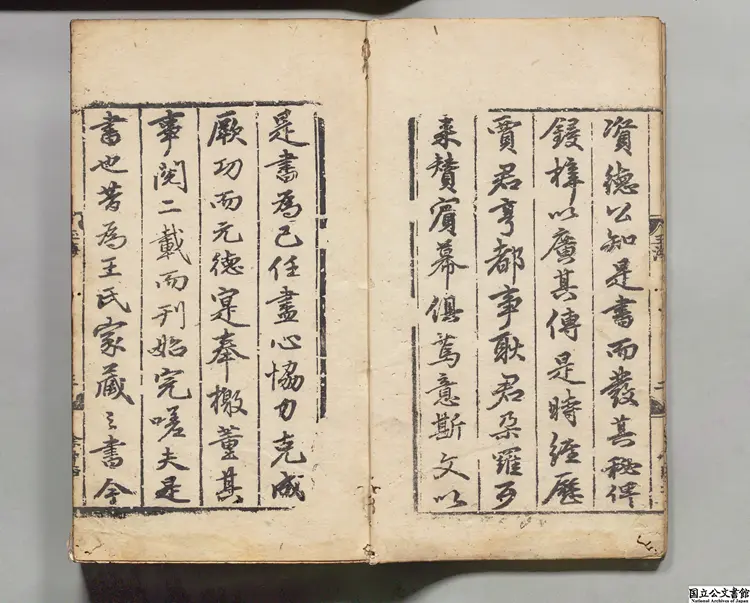 資德公知是書而發其秘俾
鋟梓以廣其傳是時經歷
賈君亨都事耿君朶羅歹
来贊賓幕俱篤意斯文以
是書為己任盡心恊力克成
厥功而元德寔奉檄董其
事閱二載而刊始完嗟夫是
書也昔為王氏家藏之書今
国立公文書館
National Archives of Japan